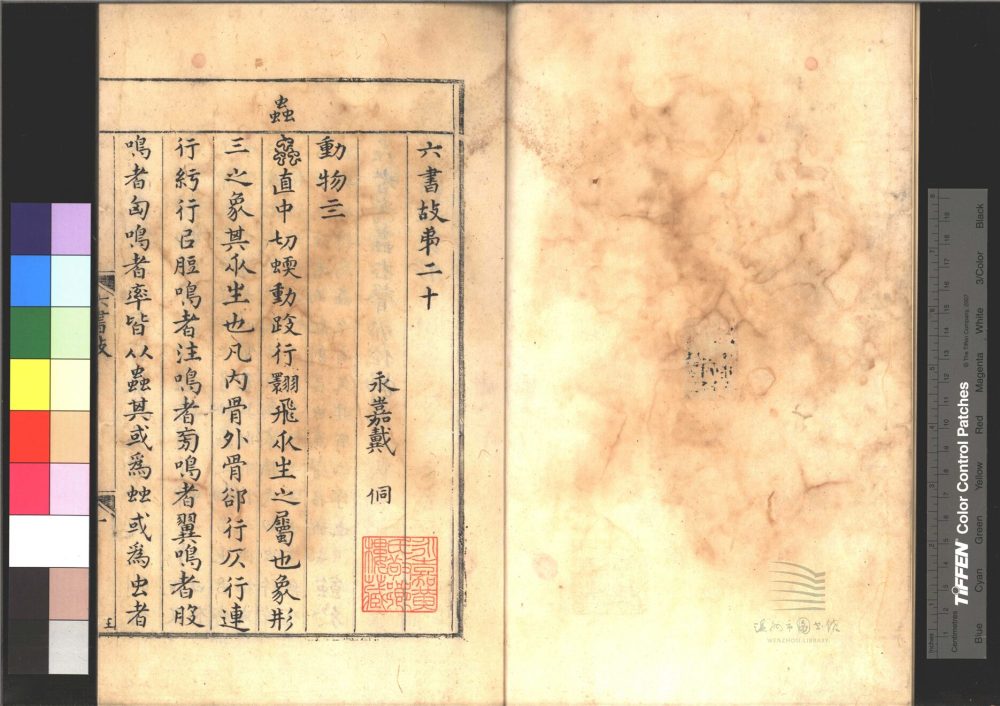 蟲
六書故弟二十
永嘉戴 侗
動物三
蟲直中切蝡動跂行翾飛𣱵生之屬也象形
三之象其𣱵生也凡内骨外骨郤行仄行連
行紆行㠯脰鳴者注鳴者旁鳴者翼鳴者股
鳴者匈鳴者率皆从蟲其或爲䖵或爲虫者
六書故
一
王
温州市圖書館
WENZHOU LIBRARY
TIFFEN Color Control Patches
© The Tiffen Company, 2007
Inches
Centimetres
Blue
Cyan
Green
Yellow
Red
Magenta
White
3/Color
Black